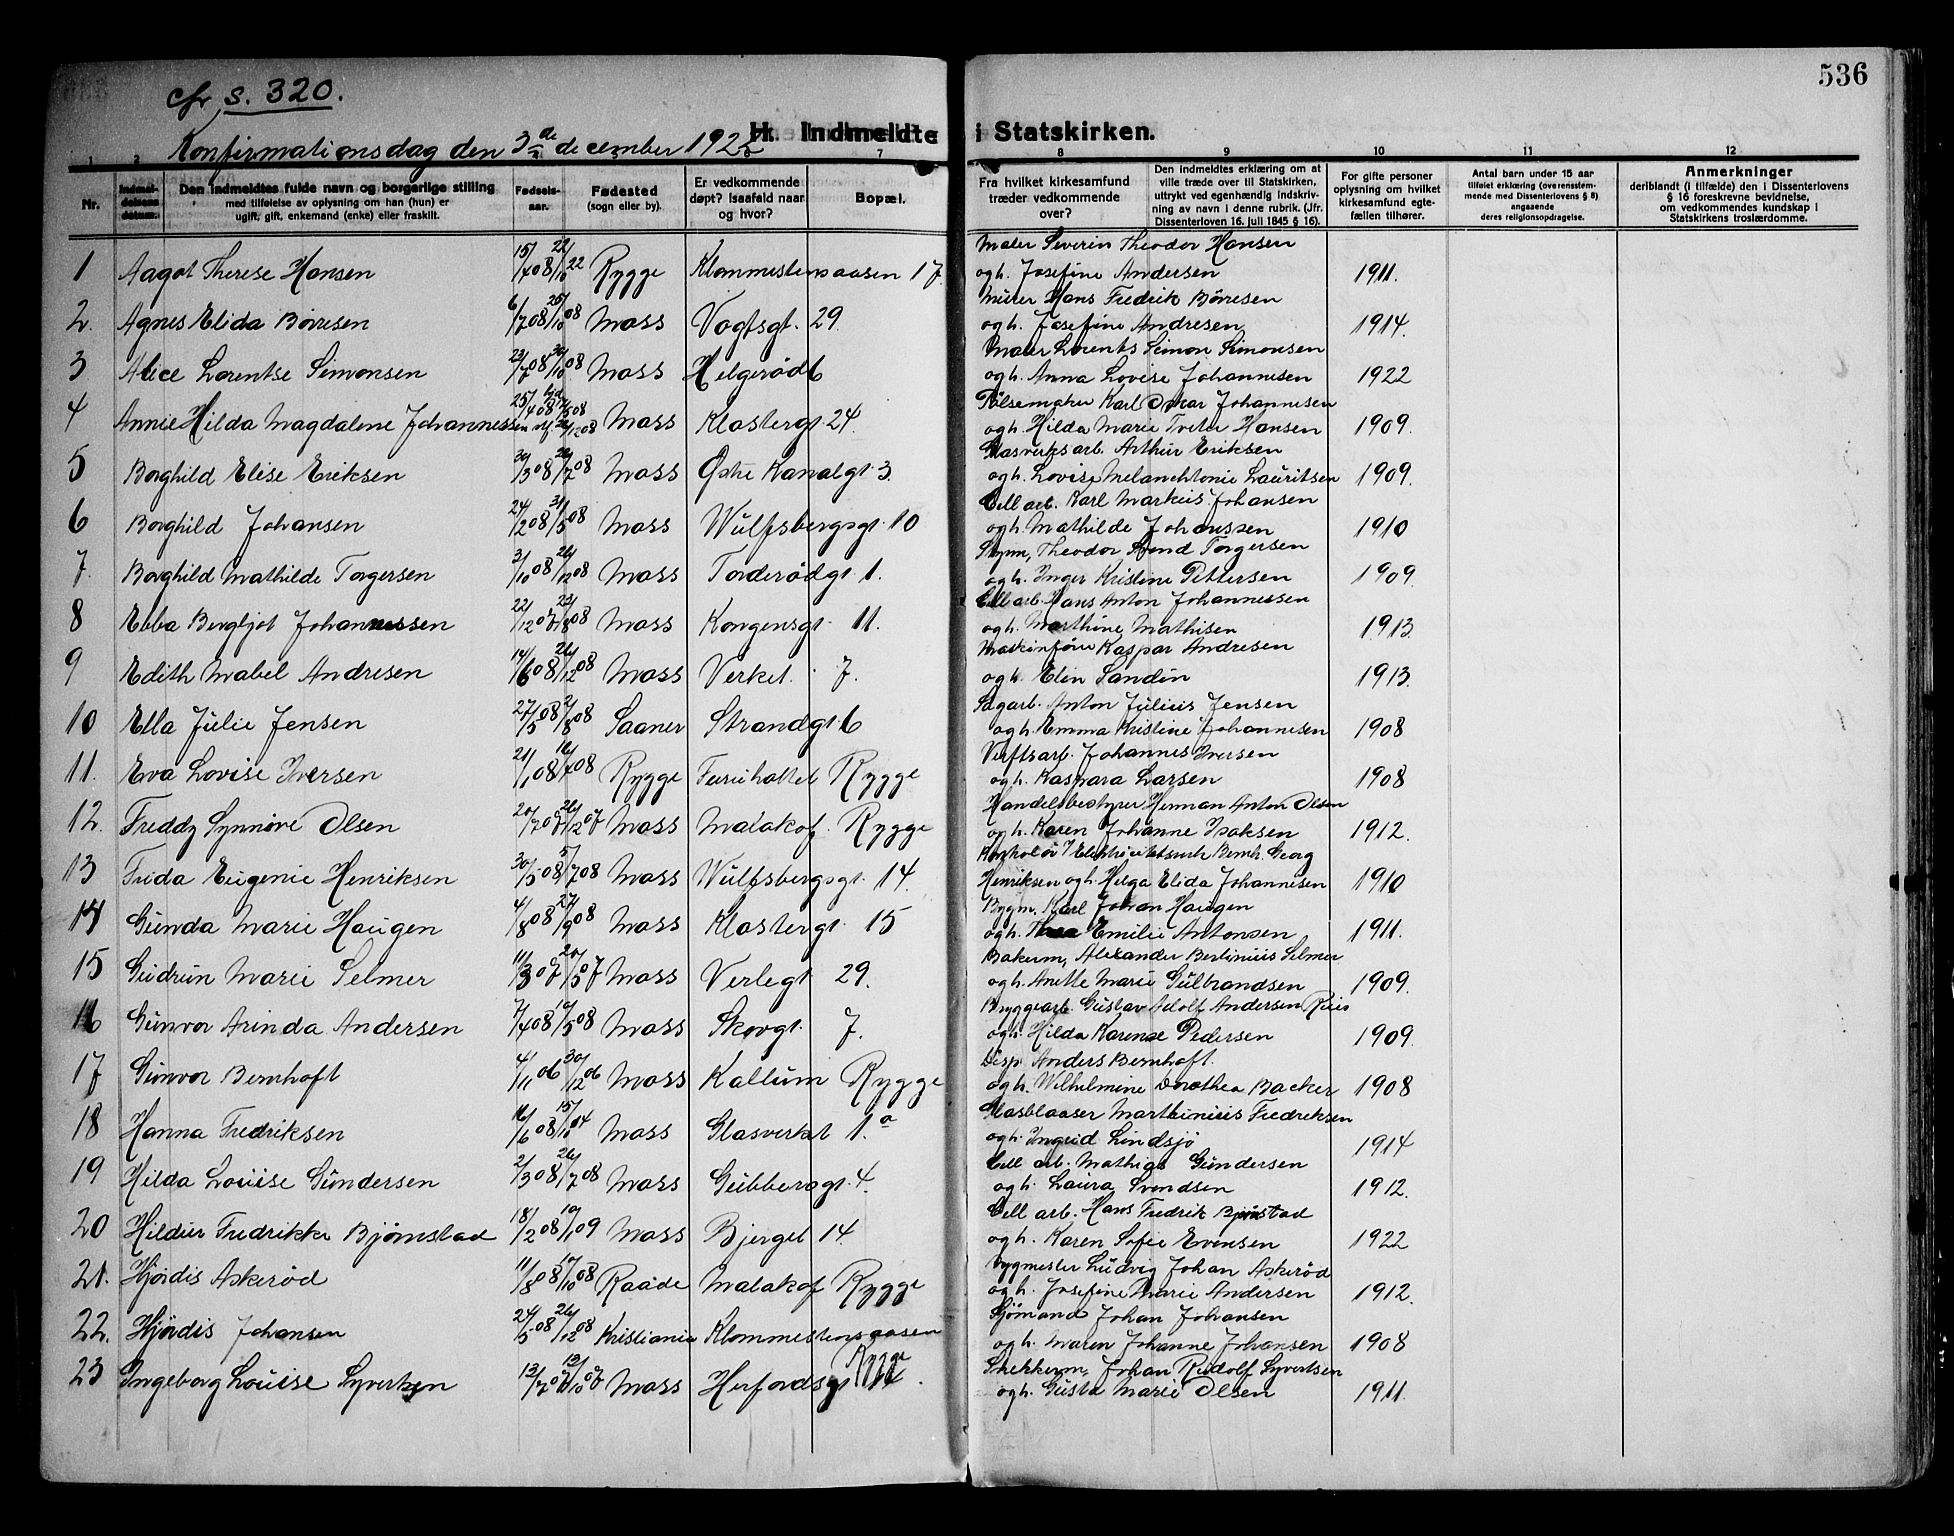 536
cfr s. 320.
Konfirmationsdag den 3de december 1922
H. Indmeldte i Statskirken.
1 2 7 8 9 10 11 12
Nr. Indmeldelsens datum. Den indmeldtes fulde navn og borgerlige stilling med tilføielse av oplysning om han (hun) er ugift, gift, enkemand (enke) eller fraskilt. Fødselsaar. Fødested (sogn eller by). Er vedkommende døpt? Isaafald naar og hvor? Bopæl. Fra hvilket kirkesamfund træder vedkommende over? Den indmeldtes erklæring om at ville træde over til Statskirken, uttrykt ved egenhændig indskrivning av navn i denne rubrik. (Jfr. Dissenterloven 16. juli 1845 § 16). For gifte personer oplysning om hvilket kirkesamfund egtefællen tilhører. Antal barn under 15 aar tilføiet erklæring (overensstemmende med Dissenterlovens § 8) angaaende deres religionsopdragelse. Anmerkninger deriblandt (i tilfælde) den i Dissenterlovens § 16 foreskrevne bevidnelse, om vedkommendes kundskap i Statskirkens troslærdomme.
Maler Severin Theodor Hansen
1 Aagot Therese Hansen 15/4 08 22/10 22 Rygge Klommestensaasen 17. og h. Josefine Andersen 1911.
Murer Hans Fredrik Børresen
2. Agnes Elida Børresen 6/7 08 25/10 08 Moss Vogtsgt. 29. og h. Josefine Andresen 1914.
Maler Lorents Simon Simonsen
3 Alice Lorentse Simonsen 23/7 08 08 Moss Helgerød 6 og h. Anna Lovise Johannesen 1922
Pølsemaker Karl Oskar Johannesen
4 Annie Hilda Magdalene Johannessen 25/4 08 26/12 08 Moss Klostergt. 24. og h. Hilda Marie Hansen 1909.
Glasverksarb. Arthur Eriksen
5 Borghild Elise Eriksen 30/3 08 26/7 08 Moss Østre Kanalgt. 3. og h. Lovise Melanchtonie Lauritsen 1909.
Cell arb. Karl Markus Johansen
6 Borghild Johansen 24/2 08 31/5 08 Moss Wulfsbergsgt. 10 og h. Mathilde Johanssen 1910
Theodor Svend Torgersen
7. Borghild Mathilde Torgersen 3/10 08 26/12 08 Moss Torderødgt. 1. og h. Inger Kristine Pettersen 1909.
Cell arb. Hans Anton Johannessen
8 Ebba Bergljot Johannessen 22/12 07 23/8 08 Moss Kongensgt. 11. og h. Marthine Mathisen 1913.
Maskinfører Kaspar Andresen
9 Edith Mabel Andresen 14/6 08 26/12 08 Moss Verket. 7. og h. Elin Sandin 1913.
Sagarb. Anton Julius Jensen
10 Ella Julie Jensen 27/5 08 2/8 08 Saaner Strandgt 6 og h. Emma Kristine Johannesen 1908
Verftsarb. Johannes Iversen
11. Eva Lovise Iversen 21/1 08 08 Rygge Furuholtet Rygge og h. Kaspara Larsen 1908
Handelsbestyrer Herman Anton Olsen
12. Freddy Synnøve Olsen 20/7 07 26/12 07 Moss Malakof. Rygge og h. Karen Johanne Isaksen 1912.
Kontorist v/ Elektricitetsverk Bernh. Georg
13 Frida Eugenie Henriksen 30/5 08 5/7 08 Moss Wulfsbergsgt. 14. Henriksen og h. Helga Elida Johannesen 1910
Bygm. Karl Johan Haugen
14 Gunda Marie Haugen 4/8 08 27/9 08 Moss Klostergt. 15 og h. Thea Emilie Antonsen 1911.
Bakerm, Alexander Berlinius Selmer
15 Gudrun Marie Selmer 11/3 07 20/5 07 Moss Verlegt 29. og h. Anette Marie Gulbrandsen 1909.
Bryggearb. Gustav Adolf Andersen Riis
16 Gunvor Arinda Andersen 7/4 08 10/5 08 Moss Skovgt. 7. og h. Hilda Karense Pedersen 1909.
Disp. Anders Bernhoft.
17 Gunvor Bernhoft 4/11 06 30/12 06 Moss Kallum Rygge og h. Wilhelmine Dorothea Backer 1908
Glasblaaser Marthinius Fredriksen
18 Hanna Fredriksen 16/6 08 15/10 04 Moss Glasverket 1.a og h. Ingrid Lindsjö 1914
Cell arb. Mathias Gundersen
19 Hilda Louise Gundersen 2/3 08 26/7 08 Moss Gubberogt. 4. og h. Laura Svendsen 1912.
Cell arb. Hans Fredrik Bjørnstad
20 Hildur Fredrikke Bjørnstad 18/2 08 10/1 09 Moss Bjerget 14 og h. Karen Sofie Evensen 1922
Bygmester Ludvig Johan Askerød
21. Hjørdis Askerød 11/8 08 17/10 08 Raade Malakof Rygge og h. Josefine Marie Andersen 1912.
Sjømand Johan Johansen
22. Hjørdis Johansen 24/5 08 26/12 08 Kristiania Klommestensaasen Rygge og h. Maren Johanne Johansen 1908
Snekkerm, Johan Rudolf Syvertsen
23 Ingeborg Louise Syvertsen 12/7 07 13/10 07 Moss Herfordsgt 14. og h. Gusta Marie Olsen 1911.